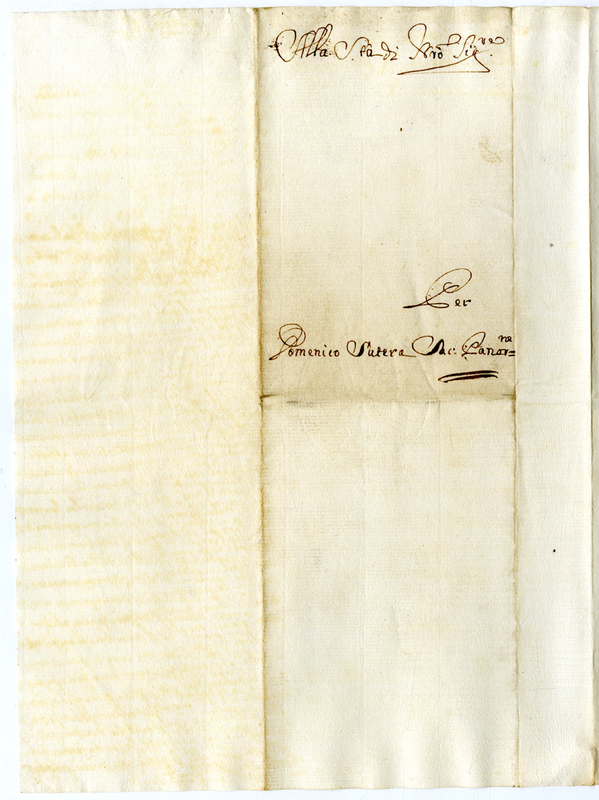 Alla Stà di Nro Sig.re
Per
Domenico Sutera Sac: Panor=ne